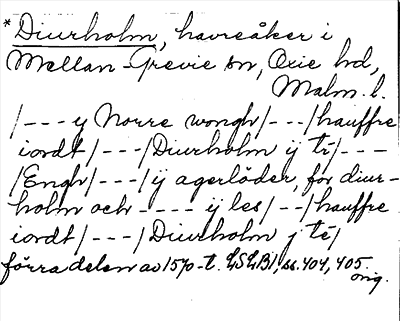 * Diurholm, havreåker i
Mellan-Grevie sn, Oxie hd,
Malm. l.
/---y Norre wongh/---/hauffre
iordt/---/Diurholm ij te/---
/Engh/---/ij agerlöder, for diur-
holm och ---- ij les/--/hauffre
iordt/---/Diurholm j te/
förra delen av 1570-t. LSLB1, ss. 404, 405.
orig.